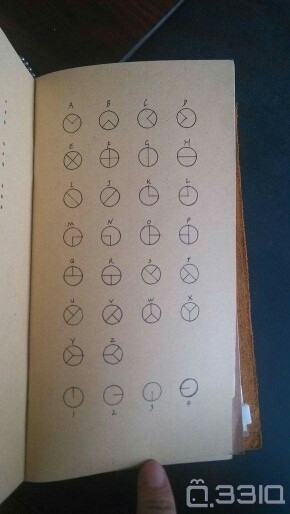 A B C D
E F G H
I J K L
M N O P
Q R S T
U V W X
Y Z
1 2 3 4
Q.33IQ